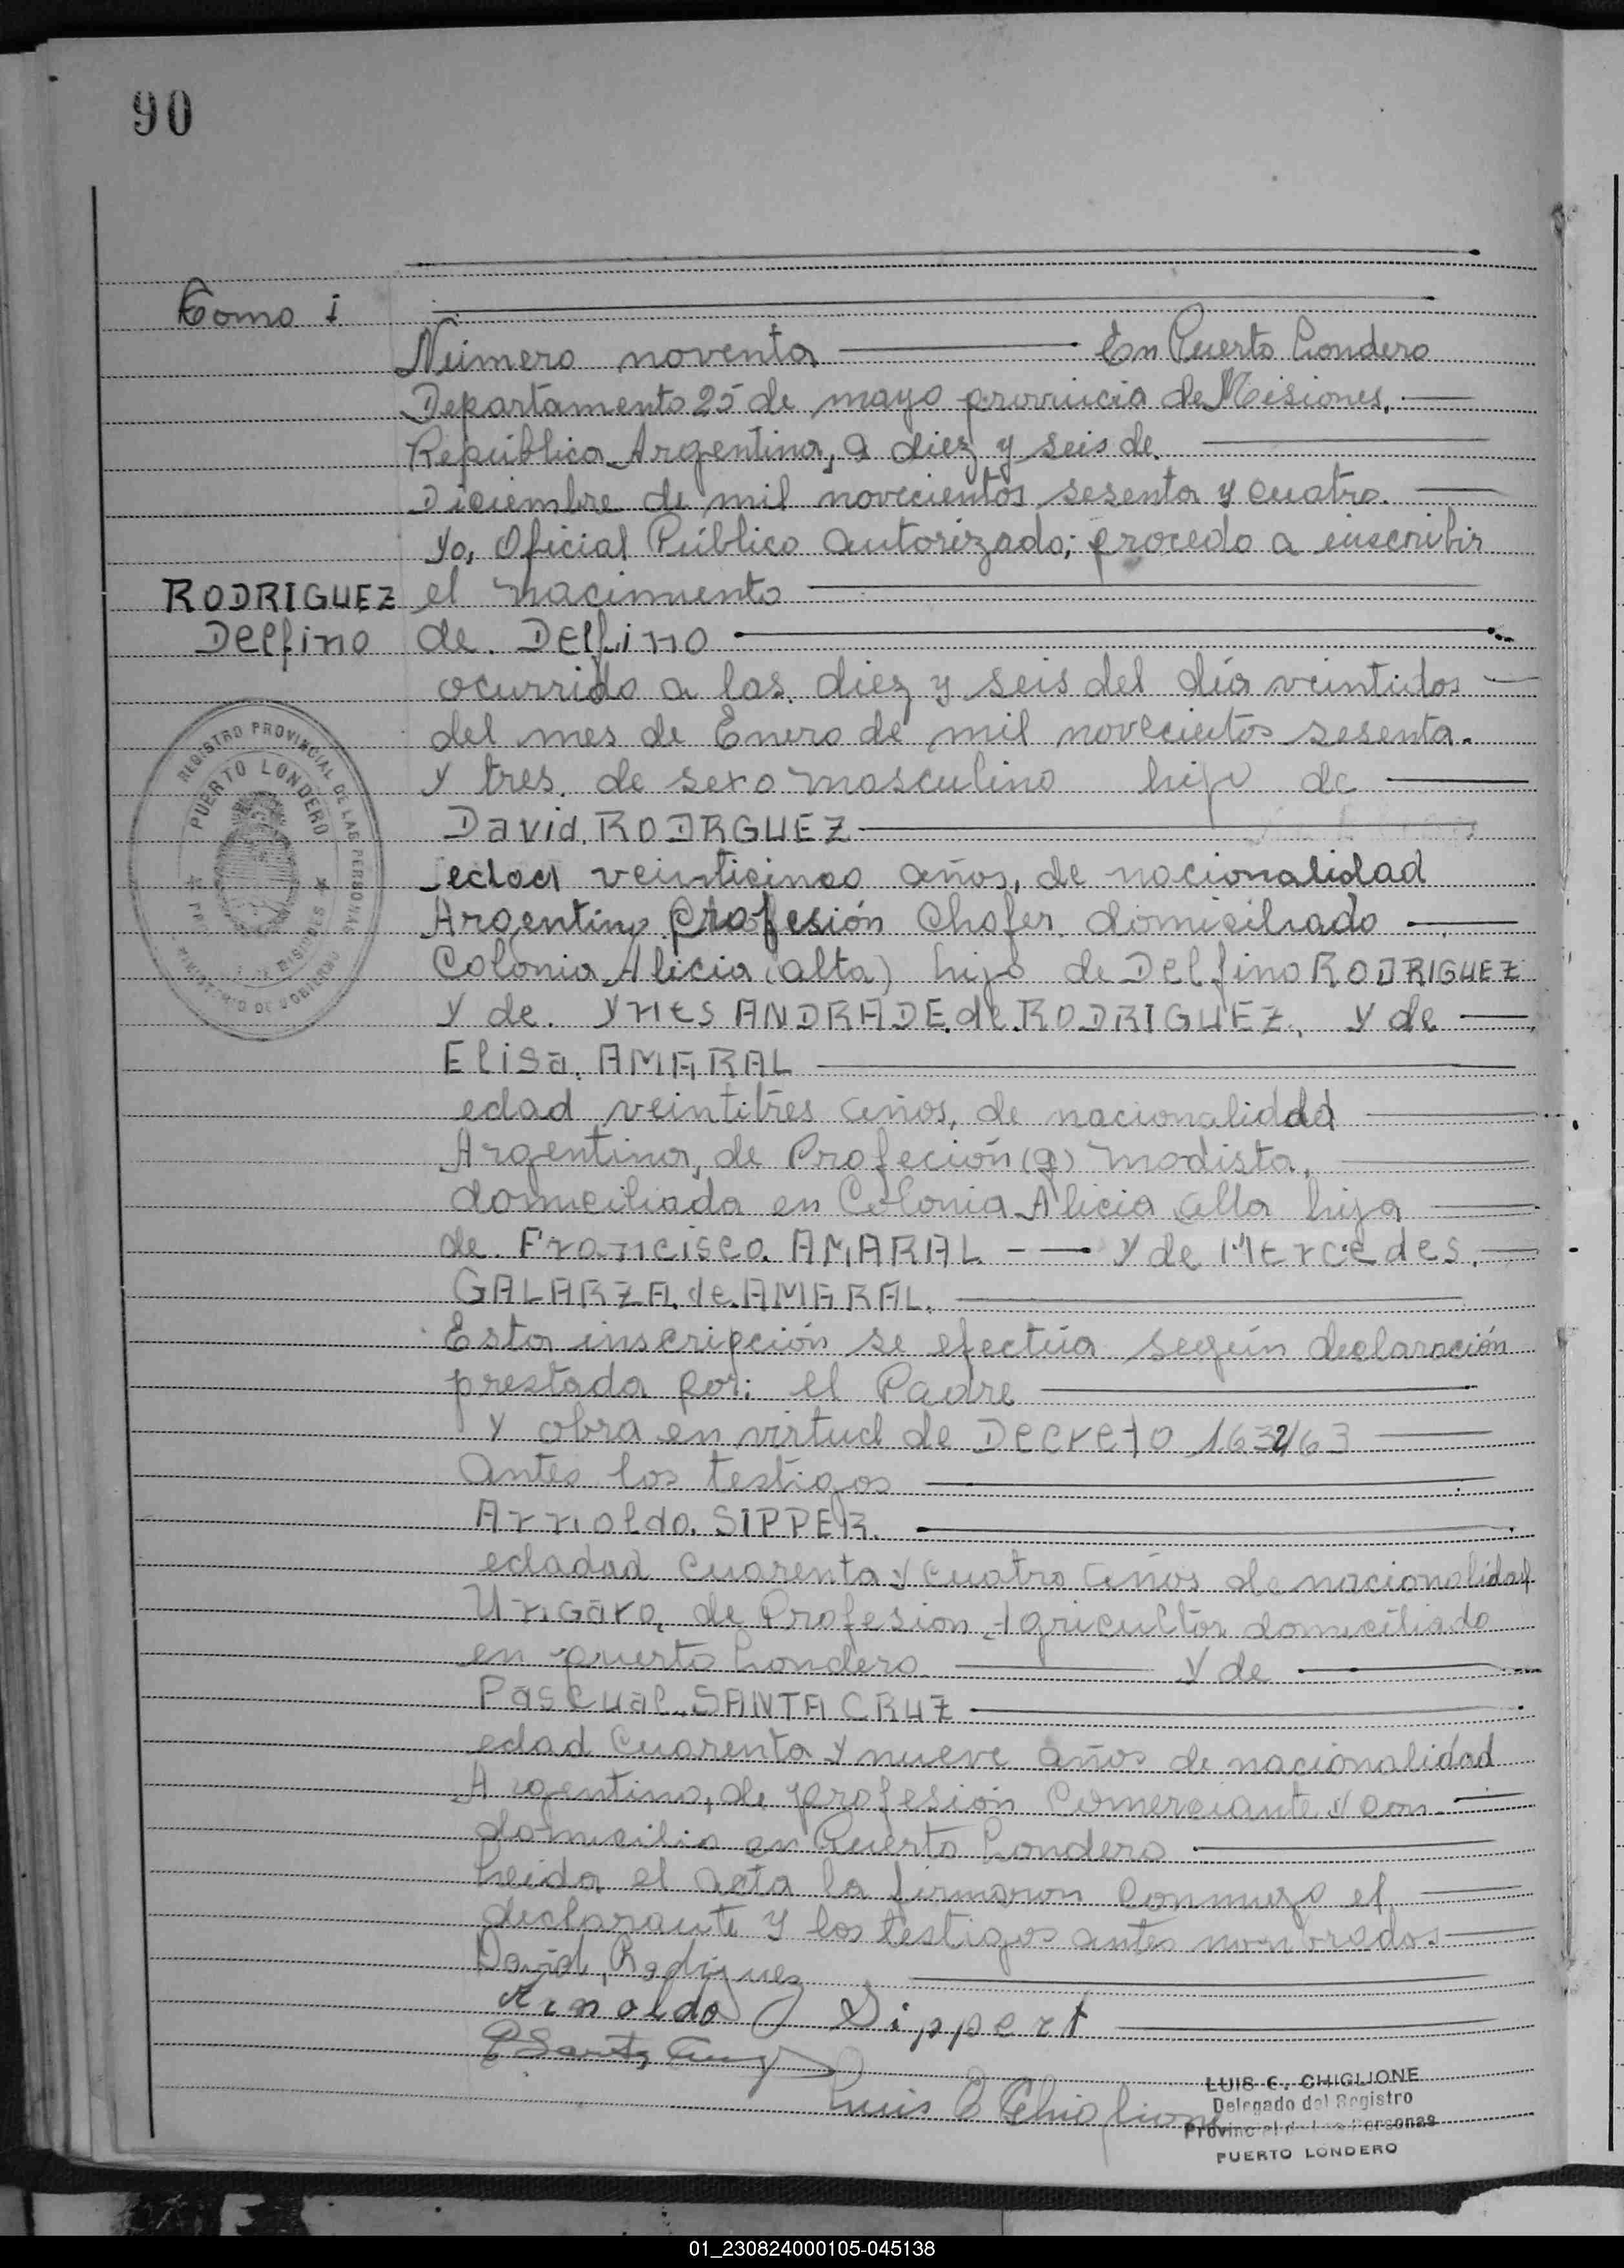 90
Tomo I
Número noventa En Puerto Londero
Departamento 25 de mayo provincia de Misiones.
República Argentina, a diez y seis de
Diciembre de mil novecientos sesenta y cuatro.
yo, Oficial Público autorizado; procedo a inscribir
RODRIGUEZ el nacimiento
Delfino de. DElfino
ocurrido a las. diez y seis del día veintidos
del mes de Enero de mil novecientos sesenta.
y tres. de sexo masculino hijo de
REGISTRO PROVINCIAL DE LAS PERSONAS
PUERTO LONDERO
MISIONES
MINISTERIO DE GOBIERNO
David. RODRGUEZ
edad veinticinco años, de nacionalidad
Argentino Profesión Chofer. domiciliado
Colonia Alicia (alta) hijo de Delfino RODRIGUEZ
y de. YNES ANDRADE. de. RODRIGUEZ, y de
Elisa. AMARAL
edad veintitres años, de nacionalidad
Argentina, de Profeción (g) modista,
domiciliada en Colonia Alicia alta hija
de Francisco. AMARAL - y de Mercedes.
GALARZA. de. AMARAL.
Esta inscripción se efectúa según declaración
prestada por: el Padre
y obra en virtud de Decreto 1632/63
antes los testigos
Arnoldo. SIPPER.
edadad cuarenta y cuatro años de nacionalidad
Ungara, de Profesion Agricultor domiciliado
en puerto Londero y de
Pascual. SANTA CRUZ
edad Cuarenta y nueve años de nacionalidad
Argentino, de profesión Comerciante y con
domicilio en Puerto Londero
Leida el acta la firmaron conmigo el
declarante y los testigos antes nombrados
David, Rodriguez
Arnoldo Sippert
P Santa Cruz
Luis C Chiglione
LUIS C. CHIGLIONE
Delegado del Registro
Provincial de las Personas
PUERTO LONDERO
01_230824000105-045138